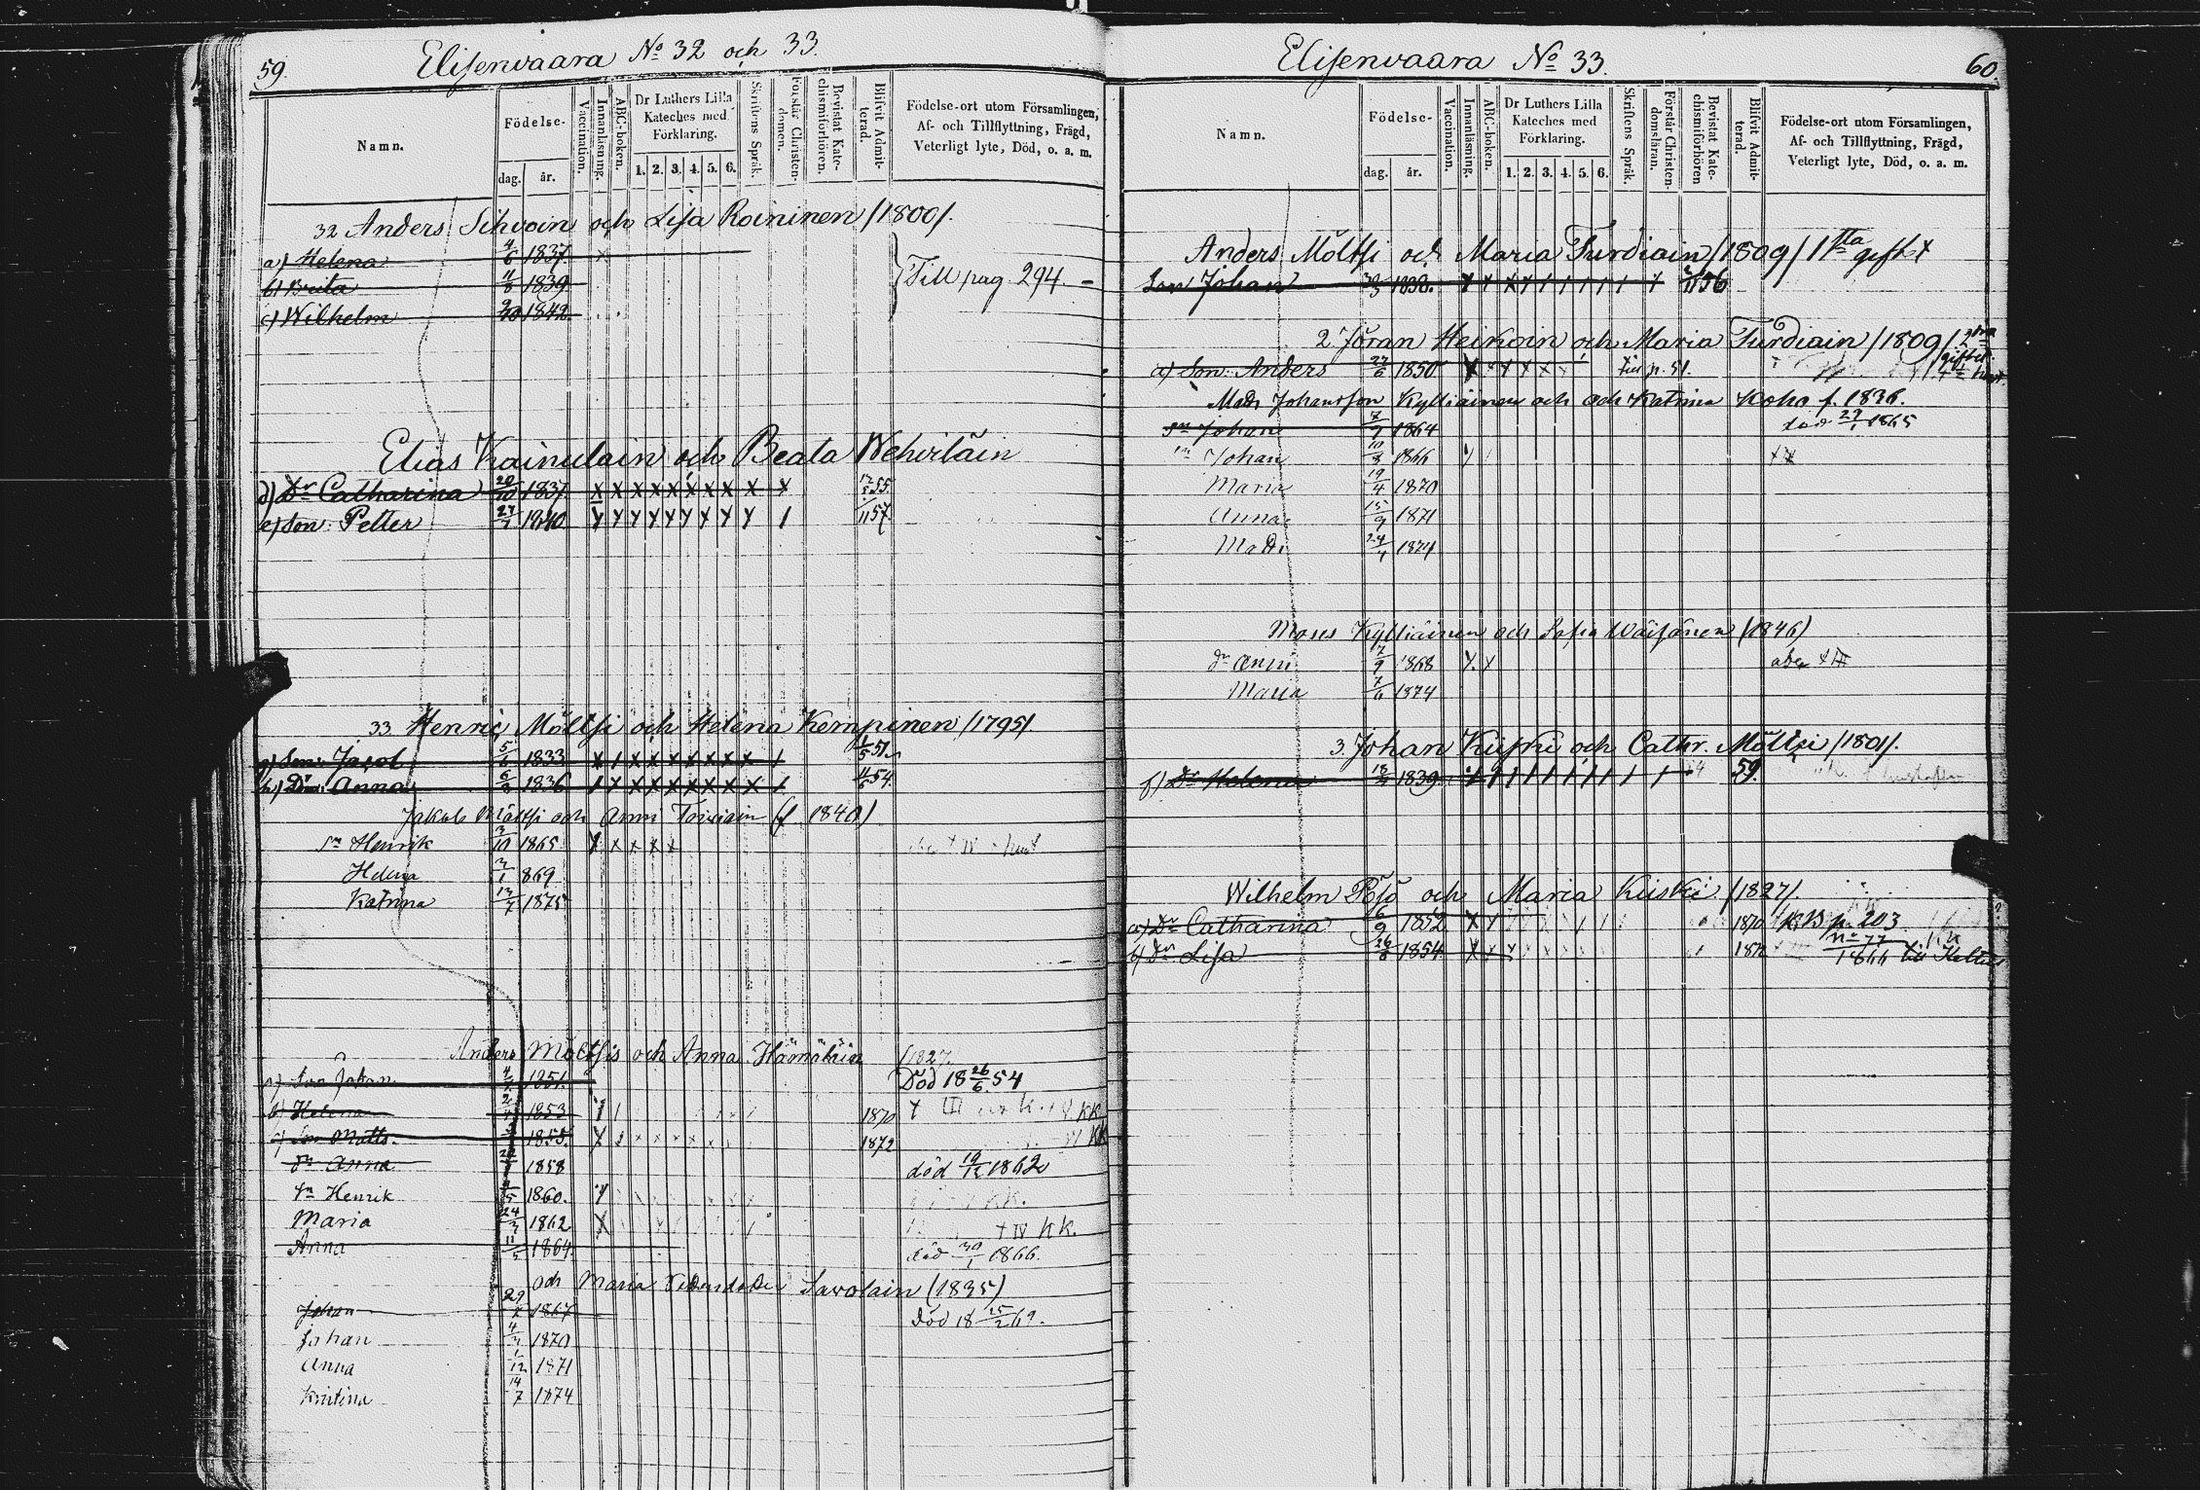 59. Elisenvaara No 32 och 33.
Namn.
Födelse-
dag. år.
Vaccination.
Innanläsning.
ABC-boken.
Dr Luthers Lilla Kateches med Förklaring.
1. 2. 3. 4. 5. 6.
Skriftens Språk.
Förstår Christendomen.
Bevistat Katechismiförhören.
Blifvit Admitterad.
Födelse-ort utom Församlingen,
Af- och Tillflyttning, Frägd,
Veterligt lyte, Död, o. a. m.
32 Anders Sihvoin och Lisa Roininen /1800/.
a) Helena 4/6 1837. x
b) Brita 1839
c) Wilhelm 1842
Till pag 294.
Elias Kainulain och Beata Wehviläin
d) Dr Catharina 20/10 1837 x x x x x x x x x x 55.
e) Son Petter 27/7 1840 57.
33. Henric Möltsi och Helena Kempinen /1795/.
g) Son: Jacob 5/6 1833 51
h) Dr Anna 6/3 1836 54.
Jakob Möltsi och Anni Toiviain (f. 1840)
sn Henrik 3/10 1865 x x x x x
Helena 869
Katrina 13/7 1875
Anders Möltsis och Anna Hämäläin /1827.
a) Son Johan 1851. Död 18 26/6 54
b) Helena 1853 1870
c) Son Matts. 1855 1872
dr Anna 1858 död 1862
sn Henrik 1860.
Maria 24/3 1862 + IV KK.
Anna 11/5 1864. död 30/1 1866.
och Maria Savolain (1835)
Johan 29 1867 död 18 25/2 69.
Johan 4/3 1870
Anna 1/12 1871
Kristina 14/7 1874
Elisenvaara No 33. 60.
Namn.
Födelse-
dag. år.
Vaccination.
Innanläsning.
ABC-boken.
Dr Luthers Lilla Kateches med Förklaring.
1. 2. 3. 4. 5. 6.
Skriftens Språk.
Förstår Christendomsläran.
Bevistat Katechismiförhören
Blifvit Admitterad.
Födelse-ort utom Församlingen,
Af- och Tillflyttning, Frägd,
Veterligt lyte, Död, o. a. m.
Anders Möltsi och Maria Turdiain /1809/ 1sta giftet
Son Johan 1838. 56
2. Jöran Heikoin och Maria Turdiain /1809/ 2dra giftet
a) Son Anders 27/6 1850 till p. 51.
Mads Johansson Kylliäinen och Katrina Koho f. 1836.
sn Johan 1864 död 29/1 1865
sn Johan 10/8 1866
Maria 19/4 1870
Anna 15/9 1871
Mads 24/4 1874
Moses Kylliäinen och Sofia Wäisänen (1846)
dr Anni 1868 x x
Maria 7/6 1874
3. Johan Kiiski och Cathr. Möltsi /1801/.
f) Dr Helena 1839. 59.
Wilhelm Pösö och Maria Kiiski /1827/.
a) Dr Catharina 6/9 1852 1870 KB p. 203
b) Dr Lisa 26/8 1854 No 77
1866